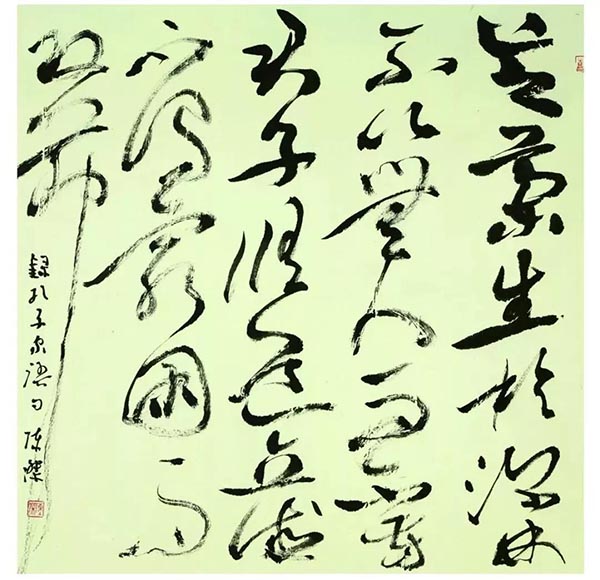 芝蘭生於深林
不以無人而不芳
君子脩道立德
不為窮困而
改節
録孔子家語句 陳